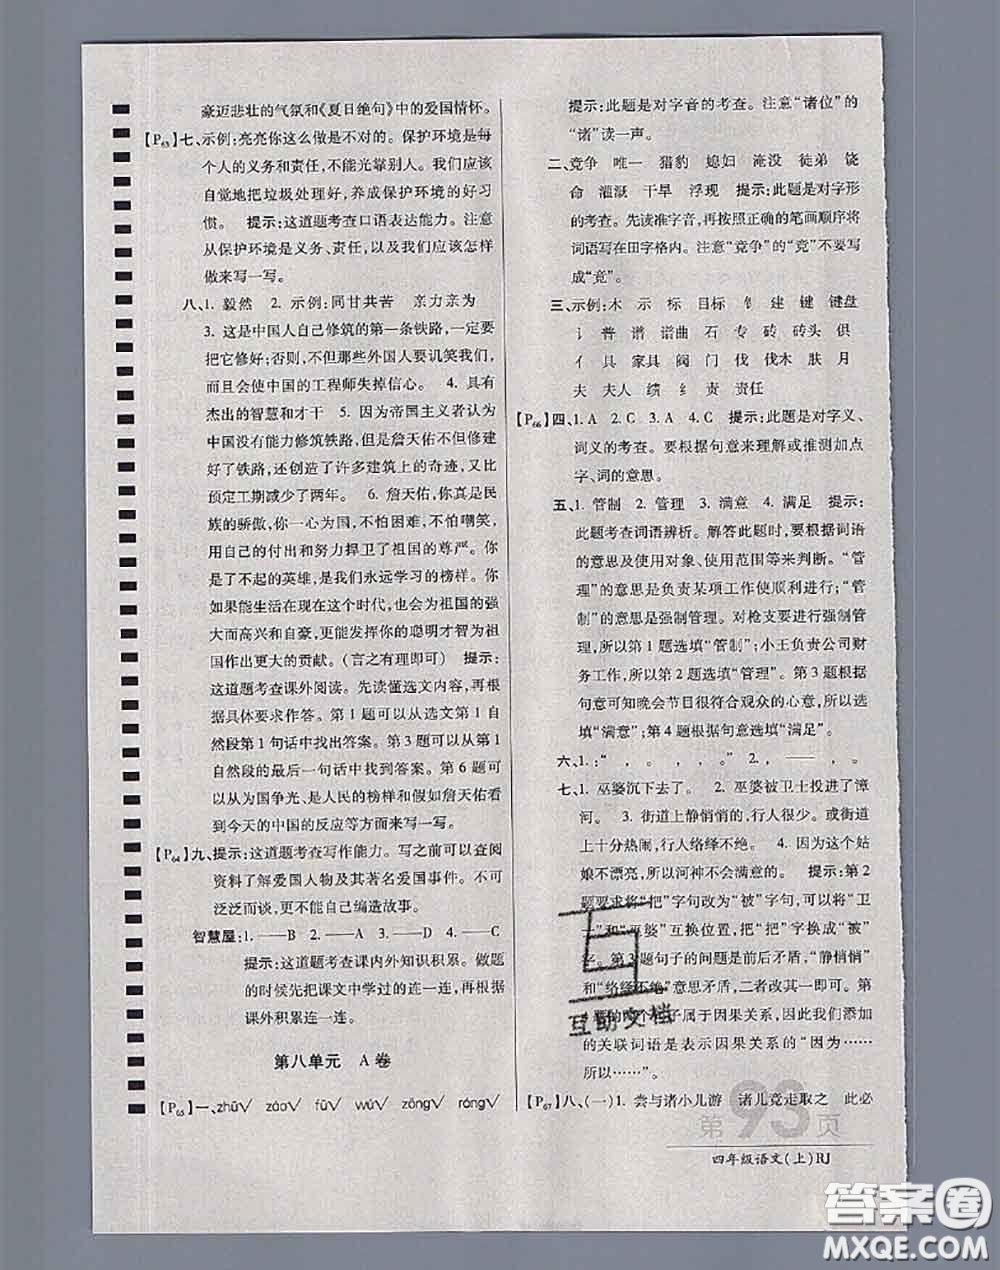 豪迈悲壮的气氛和《夏日绝句》中的爱国情怀。
【P63】七、示例:亮亮你这么做是不对的。保护环境是每
个人的义务和责任,不能光靠别人。我们应该
自觉地把垃圾处理好,养成保护环境的好习
惯。 提示:这道题考查口语表达能力。注意
从保护环境是义务、责任,以及我们应该怎样
做来写一写。
八、1. 毅然 2. 示例:同甘共苦 亲力亲为
3. 这是中国人自己修筑的第一条铁路,一定要
把它修好;否则,不但那些外国人要讥笑我们,
而且会使中国的工程师失掉信心。 4. 具有
杰出的智慧和才干 5. 因为帝国主义者认为
中国没有能力修筑铁路,但是詹天佑不但修建
好了铁路,还创造了许多建筑上的奇迹,又比
预定工期减少了两年。 6. 詹天佑,你真是民
族的骄傲,你一心为国,不怕困难,不怕嘲笑,
用自己的付出和努力捍卫了祖国的尊严。你
是了不起的英雄,是我们永远学习的榜样。你
如果能生活在现在这个时代,也会为祖国的强
大而高兴和自豪,更能发挥你的聪明才智为祖
国作出更大的贡献。(言之有理即可) 提示:
这道题考查课外阅读。先读懂选文内容,再根
据具体要求作答。第1题可以从选文第1自
然段第1句话中找出答案。第3题可以从第1
自然段的最后一句话中找到答案。第6题可
以从为国争光、是人民的榜样和假如詹天佑看
到今天的中国的反应等方面来写一写。
【P64】九、提示:这道题考查写作能力。写之前可以查阅
资料了解爱国人物及其著名爱国事件。不可
泛泛而谈,更不能自己编造故事。
智慧屋:1.——B 2.——A 3.——D 4.——C
提示:这道题考查课内外知识积累。做题
的时候先把课文中学过的连一连,再根据
课外积累连一连。
第八单元 A卷
【P65】一、zhū√ záo√ fū√ wú√ zōng√ róng√
提示:此题是对字音的考查。注意“诸位”的
“诸”读一声。
二、竞争 唯一 猎豹 媳妇 淹没 徒弟 饶
命 灌溉 干旱 浮现 提示:此题是对字形
的考查。先读准字音,再按照正确的笔画顺序将
词语写在田字格内。注意“竞争”的“竞”不要写
成“竟”。
三、示例:木 示 标 目标 钅 建 键 键盘
讠 普 谱 谱曲 石 专 砖 砖头 俱
亻 具 家具 阀 门 伐 伐木 肤 月
夫 夫人 绩 纟 责 责任
【P66】四、1. A 2. C 3. A 4. C 提示:此题是对字义、
词义的考查。要根据句意来理解或推测加点
字、词的意思。
五、1. 管制 2. 管理 3. 满意 4. 满足 提示:
此题考查词语辨析。解答此题时,要根据词语
的意思及使用对象、使用范围等来判断。“管
理”的意思是负责某项工作使顺利进行;“管
制”的意思是强制管理。对枪支要进行强制管
理,所以第1题选填“管制”;小王负责公司财
务工作,所以第2题选填“管理”。第3题根据
句意可知晚会节目很符合观众的心意,所以选
填“满意”;第4题根据句意选填“满足”。
六、1. :“ , 。 , 。” 2. , —— , 。
七、1. 巫婆沉下去了。 2. 巫婆被卫士投进了漳
河。 3. 街道上静悄悄的,行人很少。或街道
上十分热闹,行人络绎不绝。 4. 因为这个姑
娘不漂亮,所以河神不会满意的。 提示:第2
题要求将“把”字句改为“被”字句,可以将“卫
士”和“巫婆”互换位置,把“把”字换成“被”
字。第3题句子的问题是前后矛盾,“静悄悄”
和“络绎不绝”意思矛盾,二者改其一即可。第
4题的两个句子属于因果关系,因此我们添加
的关联词语是表示因果关系的“因为……
所以……”。
【P67】八、(一)1. 尝与诸小儿游 诸儿竞走取之 此必
第93页
四年级语文(上)RJ
互助文档
答案圈
MXQE.COM